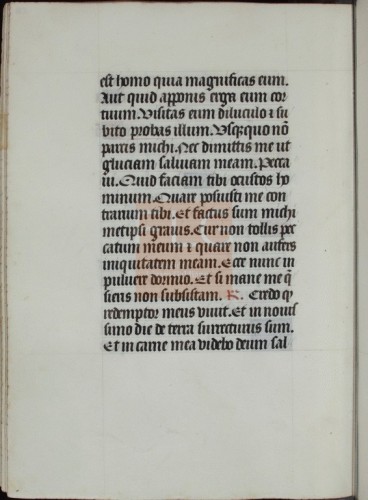 est homo quia magnificas eum.
Aut quid apponis erga eum cor
tuum. Visitas eum diluculo ⁊ su
bito probas illum. Usq;quo nō
parcis michi. Nec dimittis me ut
gluciam salivam meam. Pecca
vi. Quid faciam tibi o custos ho
minum. Quare posuisti me con
trarium tibi. Et factus sum michi
metipsi gravis. Cur non tollis pec
catum meum ⁊ quare non aufers
iniquitatem meam. Ecce nunc in
pulvere dormio. Et si mane me q̄
sieris non subsistam. R. Credo q̄
redemptor meus vivit. Et in novis
simo die de terra surrecturus sum.
Et in carne mea videbo deum sal